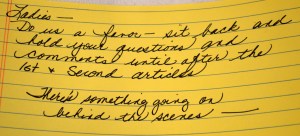 Ladies—
Do us a favor — sit back and
hold your questions and
comments until after the
1st & Second articles
There's something going on
behind the scenes —